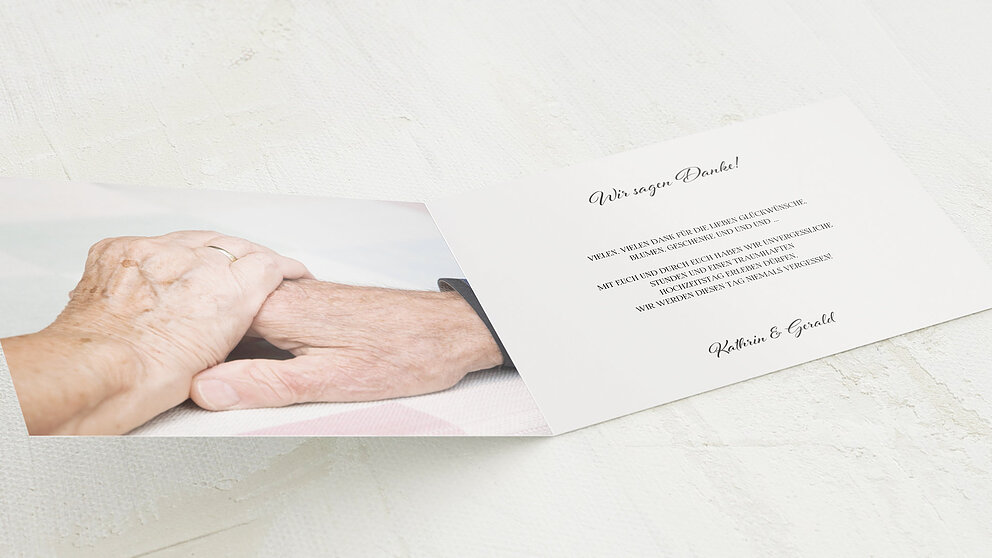 Wir sagen Danke!
VIELEN, VIELEN DANK FÜR DIE LIEBEN GLÜCKWÜNSCHE,
BLUMEN, GESCHENKE UND UND UND ...
MIT EUCH UND DURCH EUCH HABEN WIR UNVERGESSLICHE
STUNDEN UND EINEN TRAUMHAFTEN
HOCHZEITSTAG ERLEBEN DÜRFEN.
WIR WERDEN DIESEN TAG NIEMALS VERGESSEN!
Kathrin & Gerald